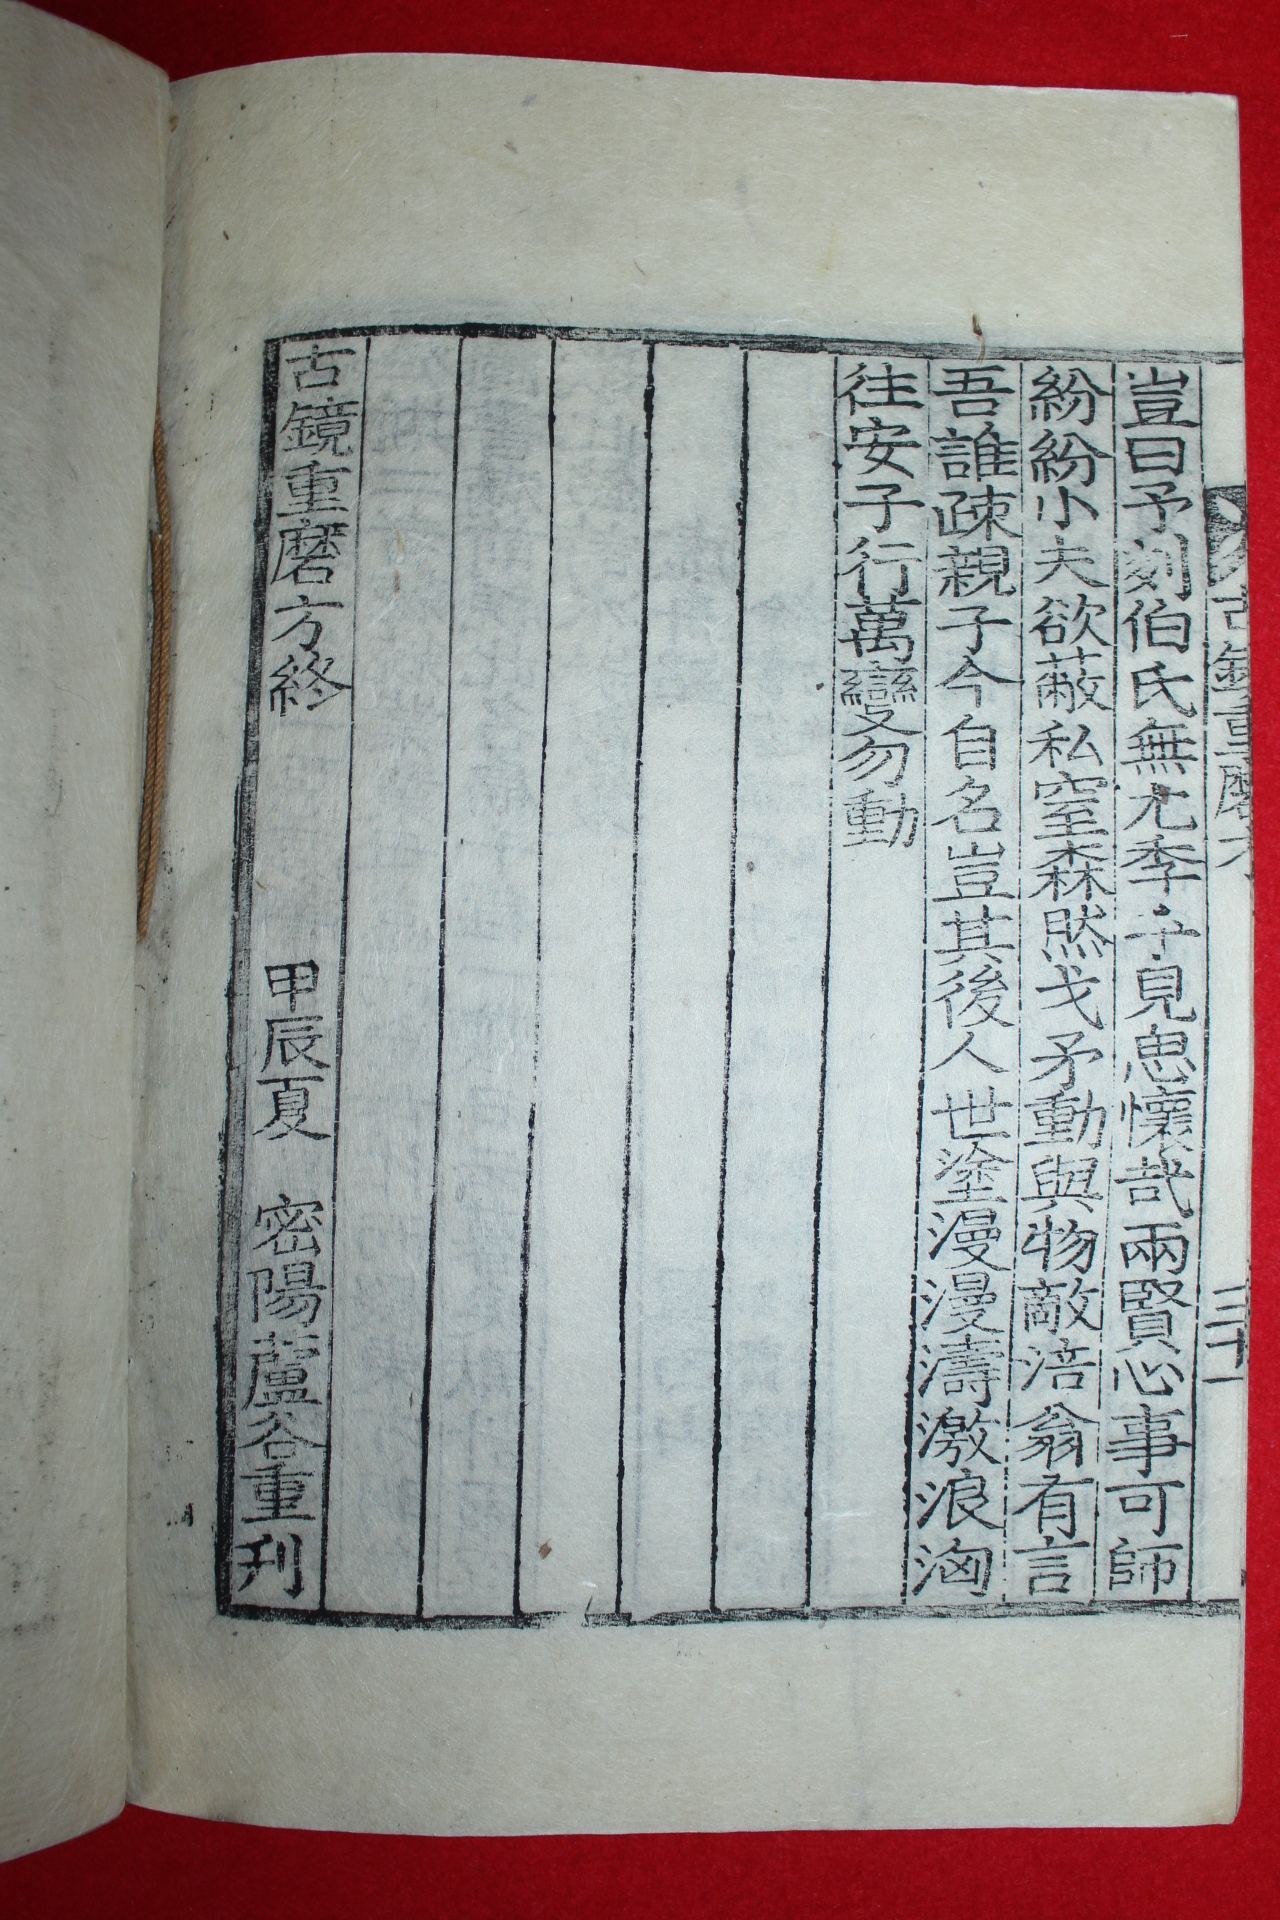 古鏡重磨方
三十一
豈曰予刻伯氏無尤季子見思懷哉兩賢心事可師
紛紛小夫欲蔽私窒森然戈矛動與物敵涪翁有言
吾誰疎親子今自名豈其後人世塗漫漫濤激浪洶
往安子行萬變勿動
古鏡重磨方終 甲辰夏 密陽蘆谷重刋